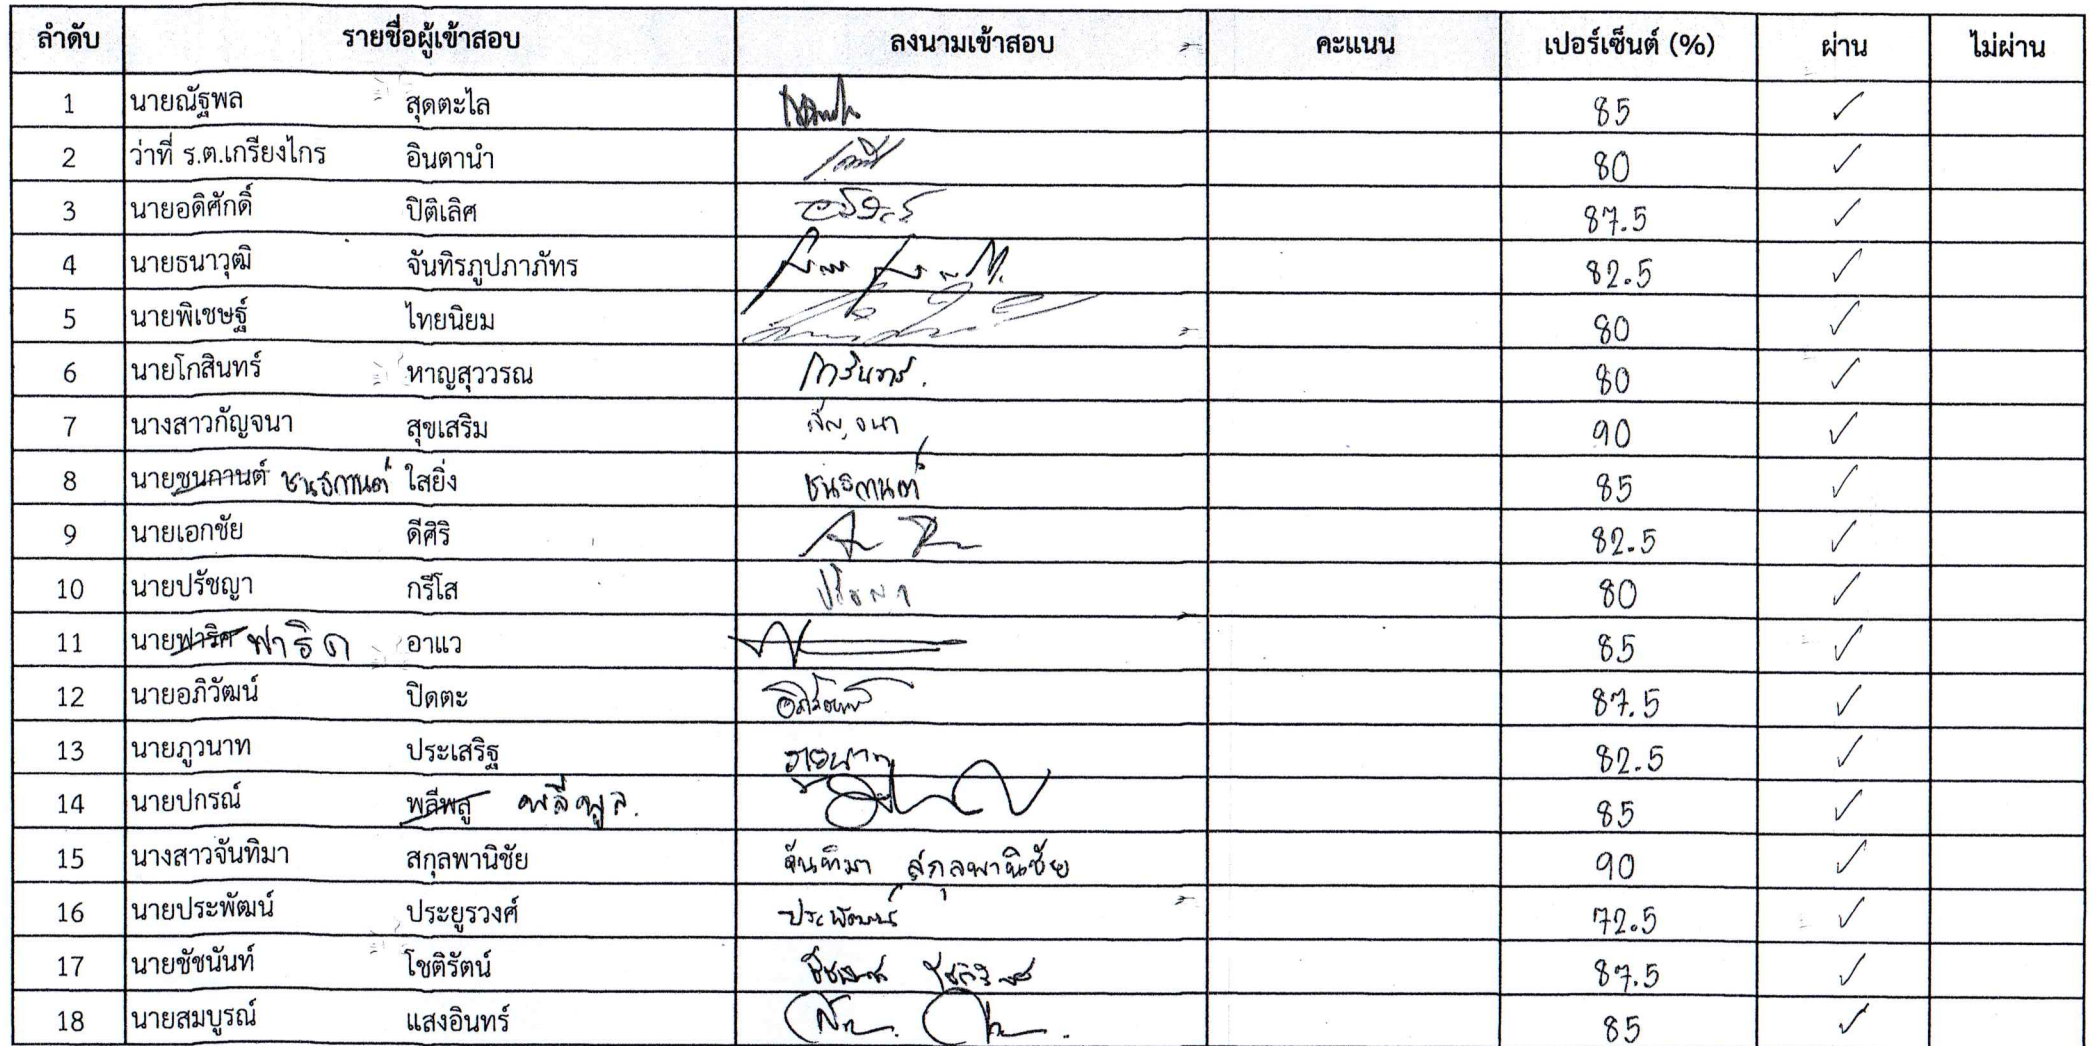 ลำดับ รายชื่อผู้เข้าสอบ ลงนามเข้าสอบ คะแนน เปอร์เซ็นต์ (%) ผ่าน ไม่ผ่าน
1 นายณัฐพล สุดตะไล 85 ✓
2 ว่าที่ ร.ต.เกรียงไกร อินตานำ 80 ✓
3 นายอดิศักดิ์ ปิติเลิศ 87.5 ✓
4 นายธนาวุฒิ จันทิรภูปภาภัทร 82.5 ✓
5 นายพิเชษฐ์ ไทยนิยม 80 ✓
6 นายโกสินทร์ หาญสุววรณ 80 ✓
7 นางสาวกัญจนา สุขเสริม กัญจนา 90 ✓
8 นายชนกานต์ ชนธกานต์ ใสยิ่ง ชนธกานต์ 85 ✓
9 นายเอกชัย ดีศิริ 82.5 ✓
10 นายปรัชญา กรีโส ปรัชญา 80 ✓
11 นายฟาริศ ฟาริด อาแว 85 ✓
12 นายอภิวัฒน์ ปิดตะ อภิวัฒน์ 87.5 ✓
13 นายภูวนาท ประเสริฐ ภูวนาท 82.5 ✓
14 นายปกรณ์ พลีพสู พลีพูล. 85 ✓
15 นางสาวจันทิมา สกุลพานิชัย จันทิมา สกุลพานิชัย 90 ✓
16 นายประพัฒน์ ประยูรวงศ์ ประพัฒน์ 72.5 ✓
17 นายชัชนันท์ โชติรัตน์ ชัชนันท์ โชติรัตน์ 87.5 ✓
18 นายสมบูรณ์ แสงอินทร์ 85 ✓